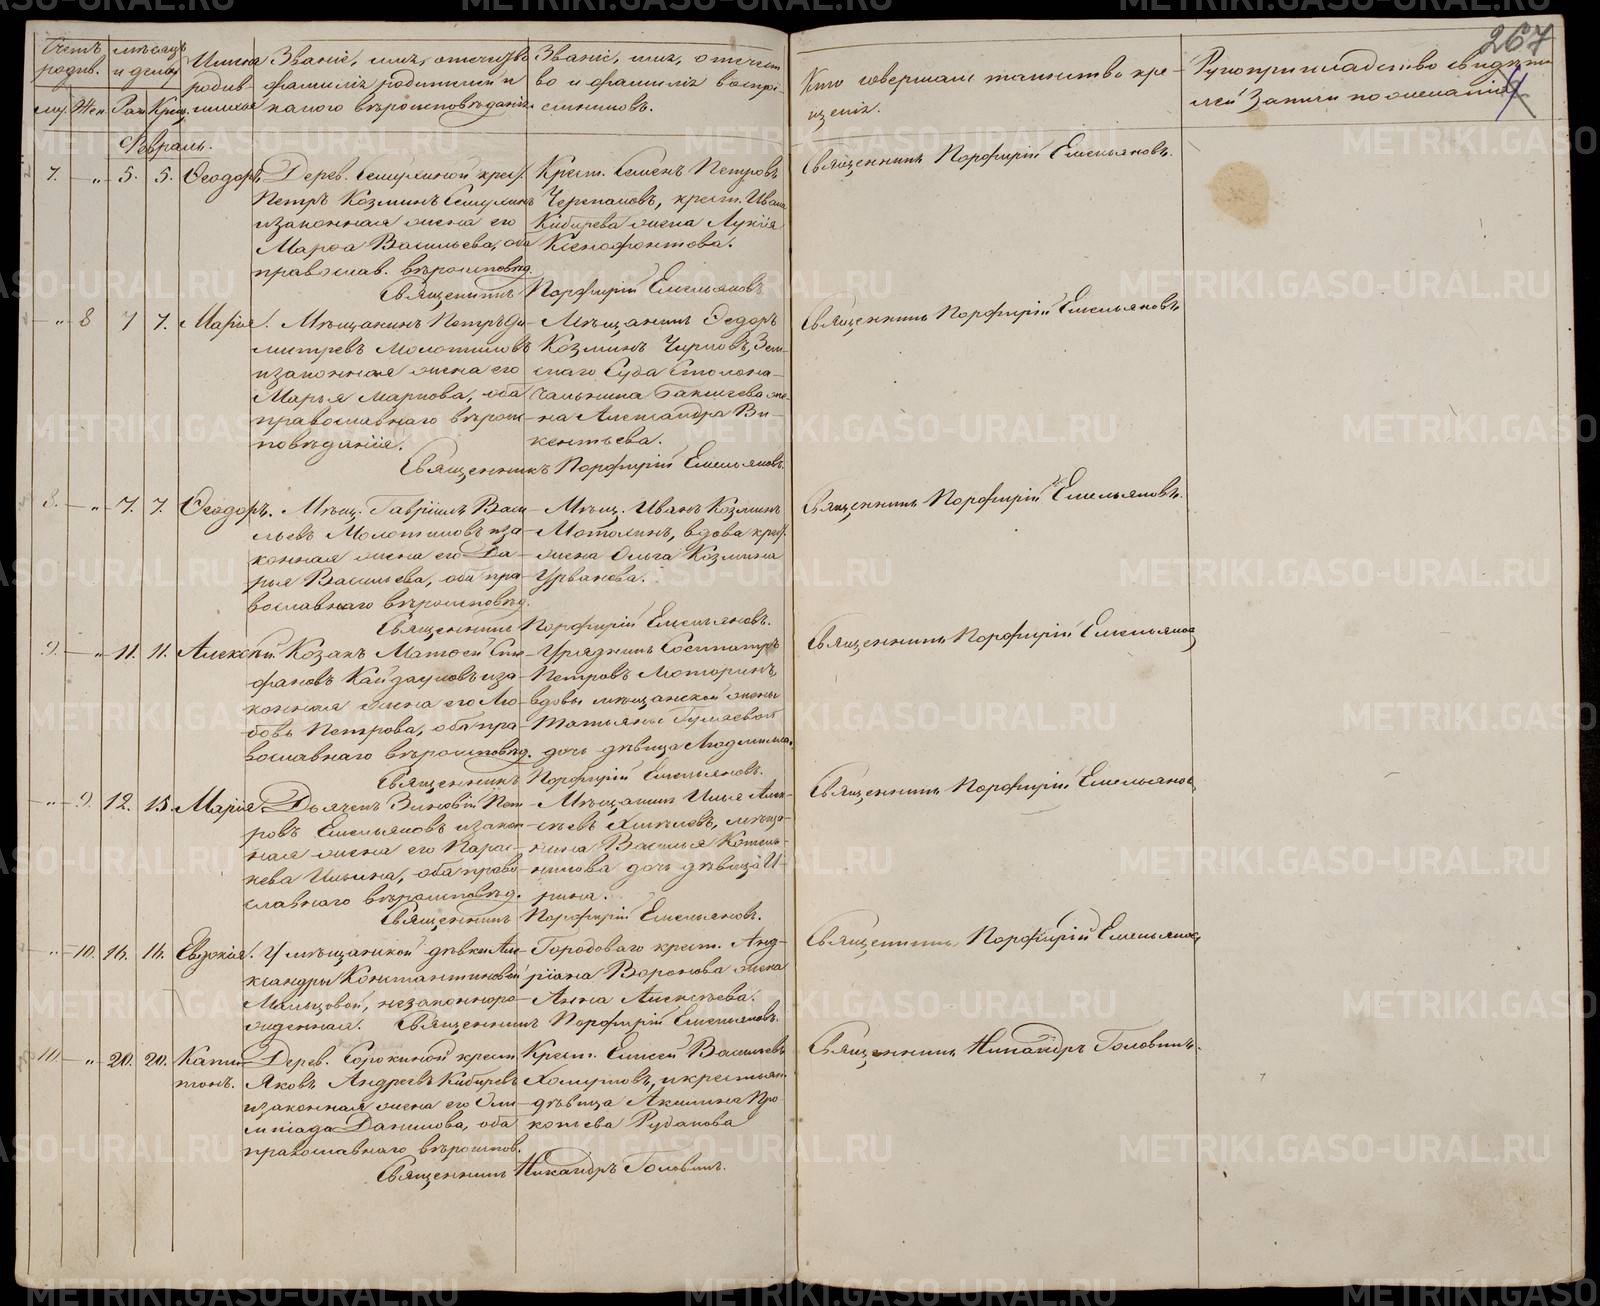 267
Счетъ родив.
мѣсяцъ и день
Имена родив-
шихся
Званіе, имя, отечество
фамилія родителей и
какого вѣроисповѣданія.
Званіе, имя, отечест
во и фамилія воспрі
емниковъ.
Кто совершалъ таинство кре-
щенія.
Рукоприкладство свидѣте
лей записи по желанію
му. Жен. Рож. Крещ.
Февраль.
7. — „ 5. 5. Ѳеодоръ.
Дерев. Семухиной крес.
Петръ Козминъ Семухинъ
и законная жена его
Марѳа Васильева, оба
православ. вѣроисповѣд.
Крест. Семенъ Петровъ
Черепановъ, крест. Ивана
Кибирева жена Лукія
Ксенофонтова.
Священникъ Порфирій Емельяновъ
Священникъ Порфирій Емельяновъ.
„ 8 7 7. Марія.
Мѣщанинъ Петръ Ди-
митревъ Молотиловъ
и законная жена его
Марья Маркова, оба
православнаго вѣроис-
повѣданія.
Мѣщанинъ Ѳедоръ
Козминъ Чирковъ, Зем-
скаго Суда Столона-
чальника жена
на Александра Ви-
кентьева.
Священникъ Порфирій Емельяновъ.
Священникъ Порфирій Емельяновъ.
8. — „ 7. 7. Ѳеодоръ.
Мѣщ. Гавріилъ Васи-
льевъ Молотиловъ и за-
конная жена его Да-
рья Васильева, оба пра-
вославнаго вѣроисповѣд.
Мѣщ. Иванъ Козминъ
вдова крес.
жена Ольга Козмина
Урванова.
Священникъ Порфирій Емельяновъ.
Священникъ Порфирій Емельяновъ.
9. — „ 11. 11. Алексѣй.
Козакъ Матѳей Сте-
фановъ Кайдауловъ и за-
конная жена его Лю-
бовь Петрова, оба пра-
вославнаго вѣроисповѣд.
Урядникъ Сосипатръ
Петровъ Моторинъ,
вдовы мѣщанской жены
Татьяны Гуляевой
дочь дѣвица Людмила.
Священникъ Порфирій Емельяновъ.
Священникъ Порфирій Емельяновъ
„ — 9. 12. 15. Марія.
Дьячекъ Зиновій Пет-
ровъ Емельяновъ и закон-
ная жена его Парас-
кева Ильина, оба право-
славнаго вѣроисповѣд.
Мѣщанинъ Илья Алек-
сѣевъ Хмѣлевъ, мѣща-
нина Василья Котель-
никова дочь дѣвица И-
рина.
Священникъ Порфирій Емельяновъ.
Священникъ Порфирій Емельяновъ
„ — 10. 16. 16. Евдокія.
У мѣщанской дѣвки Але-
ксандры Константиновой
Мальцовой, незаконноро-
жденная.
Городоваго крест. Анд-
ріана Воронова жена
Анна Алексѣева.
Священникъ Порфирій Емельяновъ.
Священникъ Порфирій Емельяновъ
10. „ 20. 20. Капи-
тонъ.
Дерев. Сорокиной крест
Яковъ Андреевъ Кибиревъ
и законная жена его Оли-
мпіада Данилова, оба
православнаго вѣроиспов.
Крест. Елисей Васильевъ
и крестьян.
дѣвица Акилина Про-
копьева Рубанова
Священникъ Никандръ Головинъ.
Священникъ Никандръ Головинъ.
METRIKI.GASO-URAL.RU